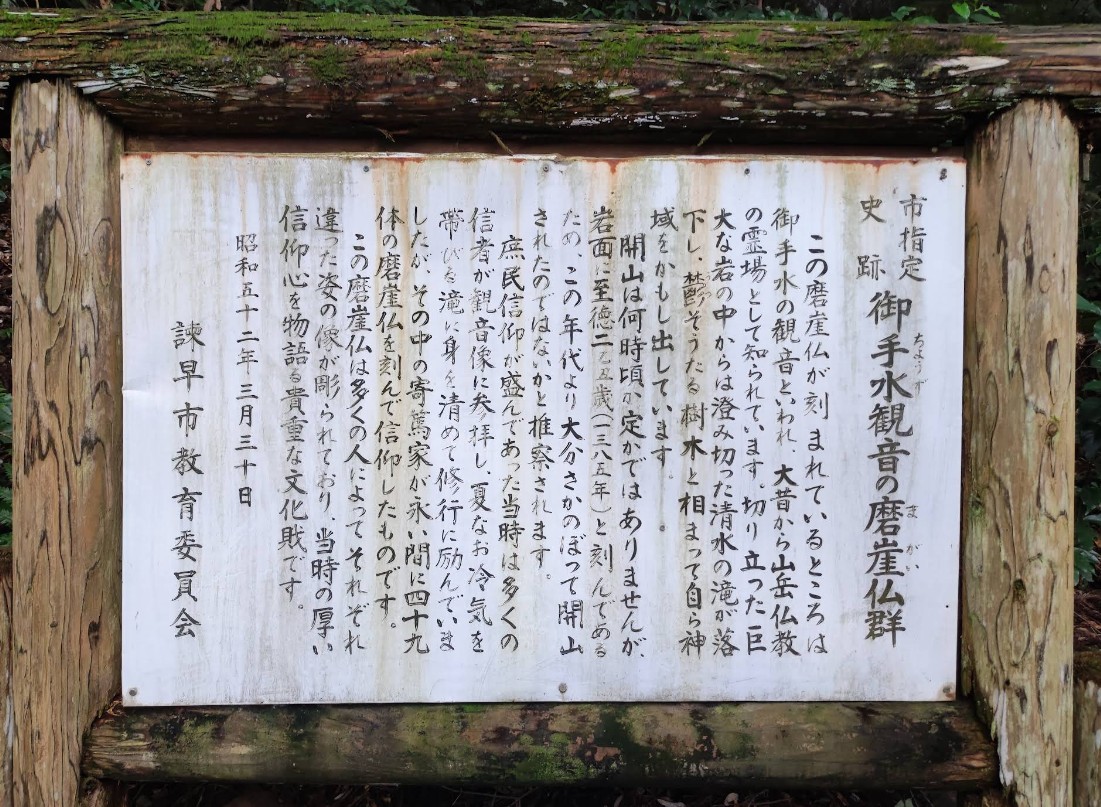 市指定
史跡
御手水観音の磨崖仏群
ちょうず
まがい
この磨崖仏が刻まれているところは
御手水の観音といわれ、大昔から山岳仏教
の霊場として知られています。切り立った巨
大な岩の中からは澄み切った清水の滝が落
下し、鬱そうたる樹木と相まって自ら神
域をかもし出しています。
開山は何時頃か定かではありませんが、
岩面に至徳二乙丑歳(一三八五年)と刻んである
ため、この年代より大分さかのぼって開山
されたのではないかと推察されます。
庶民信仰が盛んであった当時は多くの
信者が観音像に参拝し、夏なお冷気を
帯びる滝に身を清めて修行に励んでいま
したが、その中の寄篤家が永い間に四十九
体の磨崖仏を刻んで信仰したものです。
この磨崖仏は多くの人によってそれぞれ
違った姿の像が彫られており、当時の厚い
信仰心を物語る貴重な文化財です。
昭和五十二年三月三十日
諫早市教育委員会